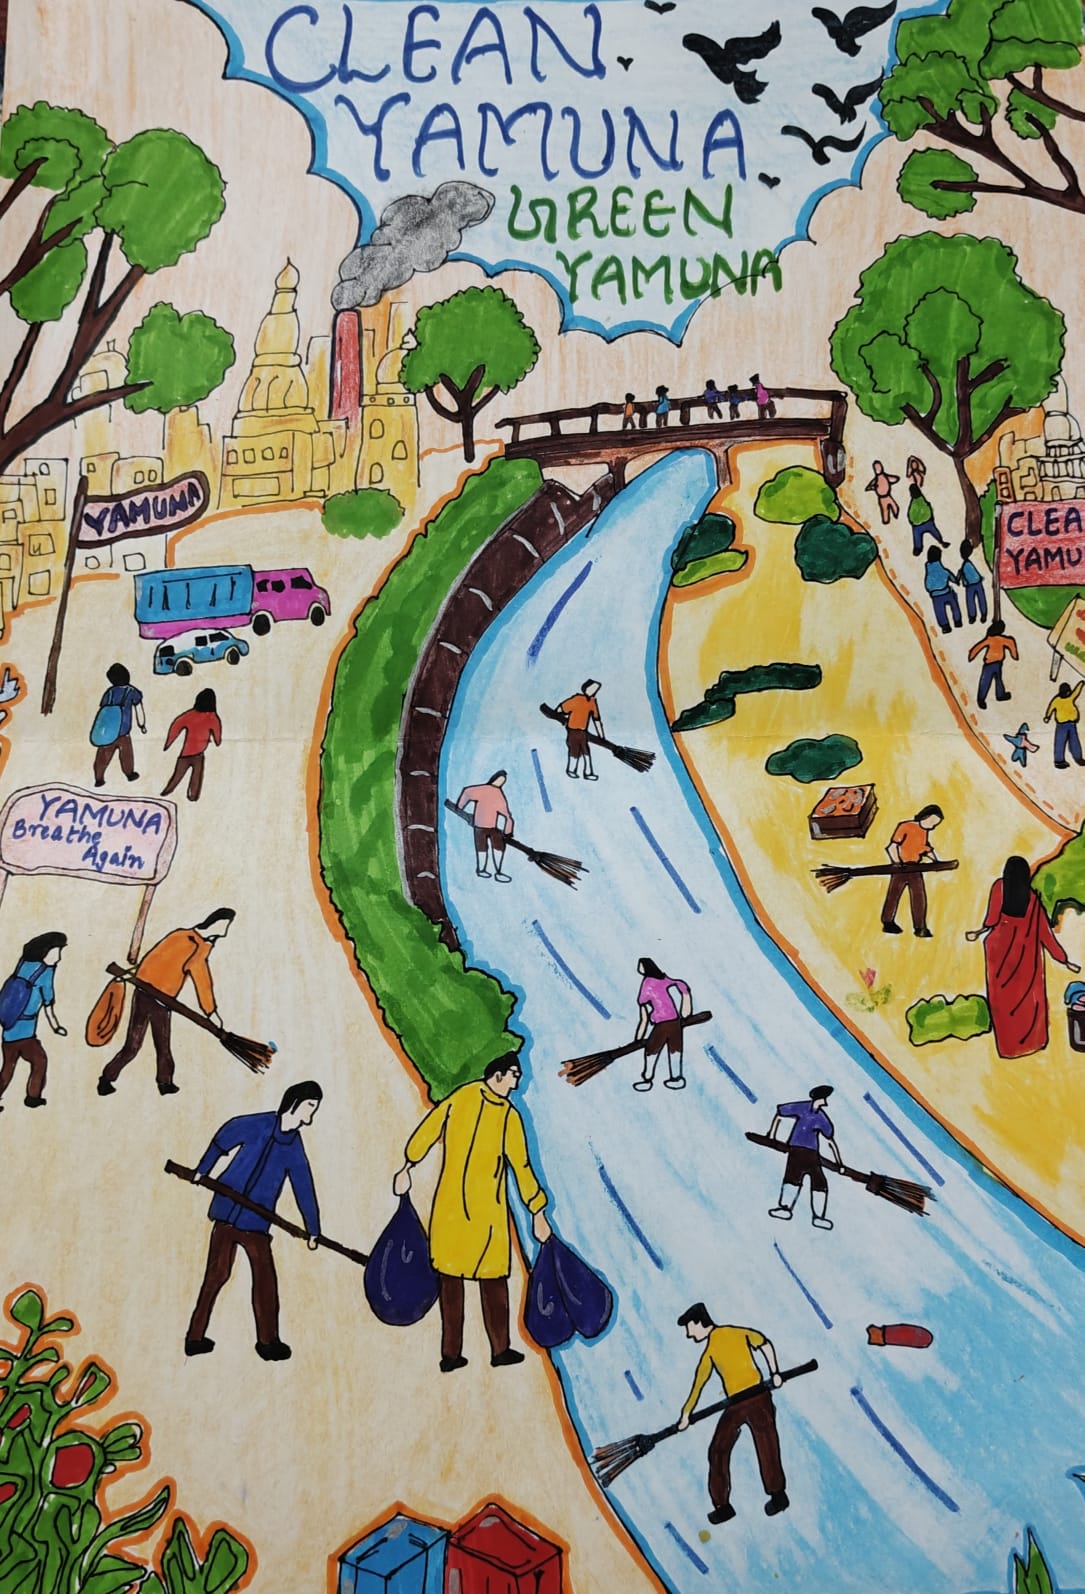 CLEAN
YAMUNA
GREEN
YAMUNA
YAMUNA
CLEA
YAMU
YAMUNA
Breathe
Again